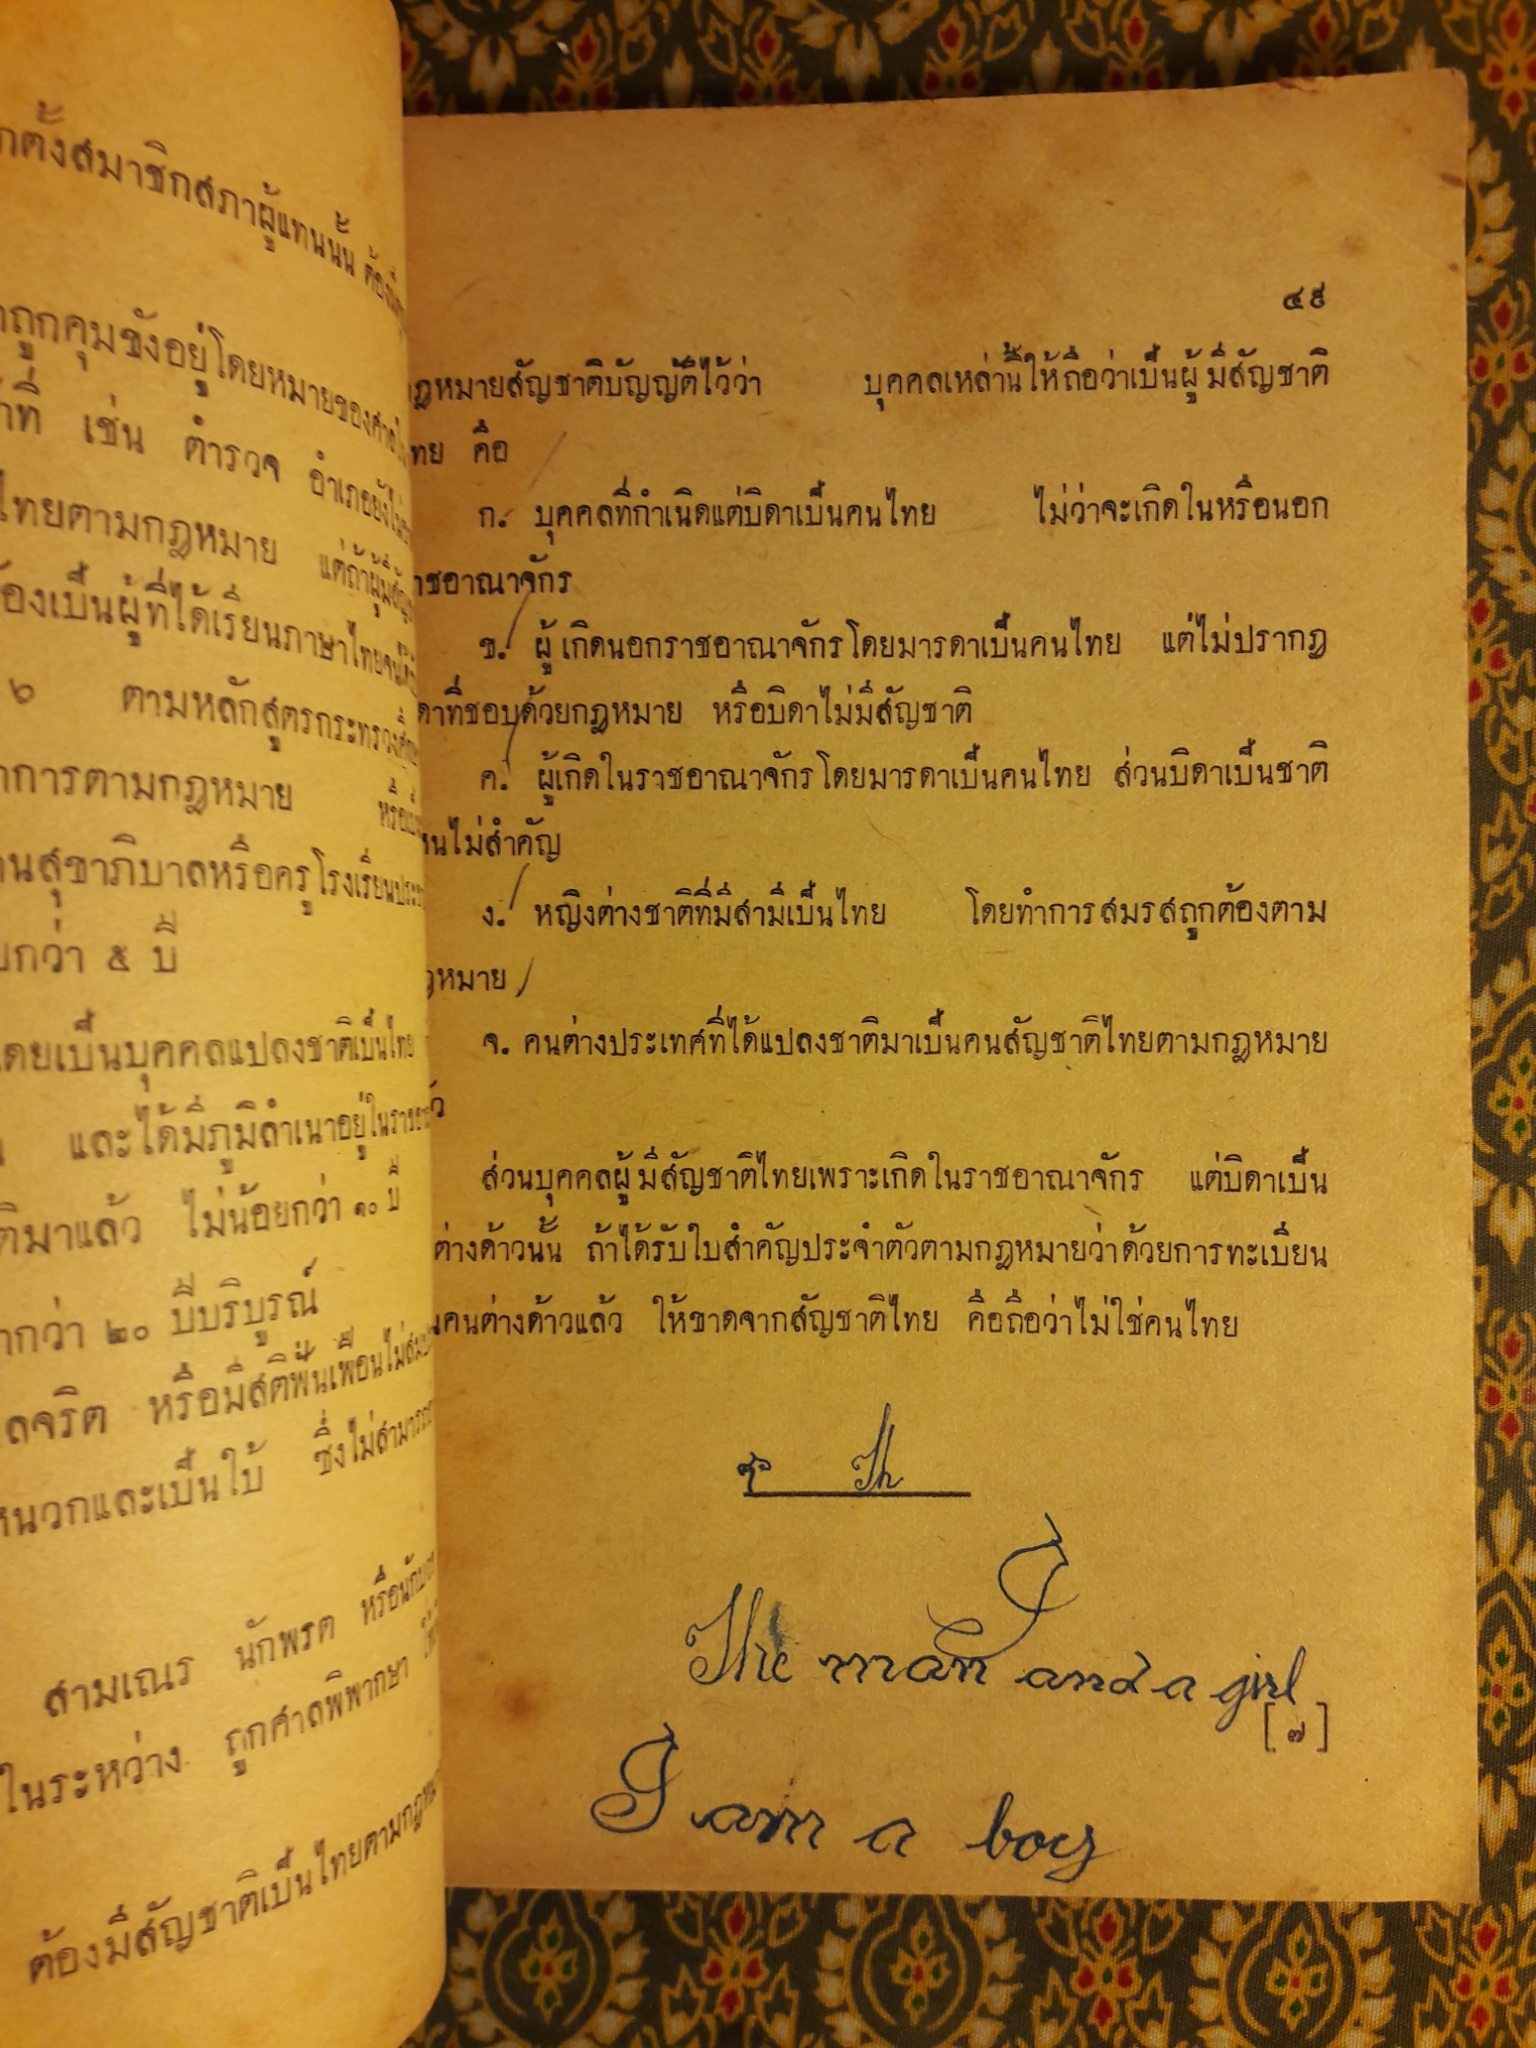 กตั้งสมาชิกสภาผู้แทนนั้น
ถูกคุมขังอยู่โดยหมายของศาล
เช่น ตำรวจ อำเภอยัง
ไทยตามกฎหมาย
องเป็นผู้ที่ได้เรียนภาษาไทย
๖ ตามหลักสูตรกระทรวง
การตามกฎหมาย
สุขาภิบาลหรือครูโรงเรียน
กว่า ๕ ปี
โดยเป็นบุคคลแปลงชาติเป็นไทย
และได้มีภูมิลำเนาอยู่ใน
มาแล้ว ไม่น้อยกว่า ๑๐ ปี
กว่า ๒๐ ปีบริบูรณ์
ลจริต หรือมีสติฟั่นเฟือนไม่
หนวกและเป็นใบ้ ซึ่งไม่สามารถ
สามเณร นักพรต หรือ
ในระหว่าง ถูกศาลพิพากษา
ต้องมีสัญชาติเป็นไทยตาม
๔๙
ฎหมายสัญชาติบัญญัติไว้ว่า บุคคลเหล่านี้ให้ถือว่าเป็นผู้มีสัญชาติ
ทย คือ
ก. บุคคลที่กำเนิดแต่บิดาเป็นคนไทย ไม่ว่าจะเกิดในหรือนอก
าชอาณาจักร
ข. ผู้เกิดนอกราชอาณาจักรโดยมารดาเป็นคนไทย แต่ไม่ปรากฏ
ดาที่ชอบด้วยกฎหมาย หรือบิดาไม่มีสัญชาติ
ค. ผู้เกิดในราชอาณาจักรโดยมารดาเป็นคนไทย ส่วนบิดาเป็นชาติ
หนไม่สำคัญ
ง. หญิงต่างชาติที่มีสามีเป็นไทย โดยทำการสมรสถูกต้องตาม
ฎหมาย
จ. คนต่างประเทศที่ได้แปลงชาติมาเป็นคนสัญชาติไทยตามกฎหมาย
ส่วนบุคคลผู้มีสัญชาติไทยเพราะเกิดในราชอาณาจักร แต่บิดาเป็น
ต่างด้าวนั้น ถ้าได้รับใบสำคัญประจำตัวตามกฎหมายว่าด้วยการทะเบียน
นคนต่างด้าวแล้ว ให้ขาดจากสัญชาติไทย คือถือว่าไม่ใช่คนไทย
Th
I
The man and a girl
[๗]
I am a boy